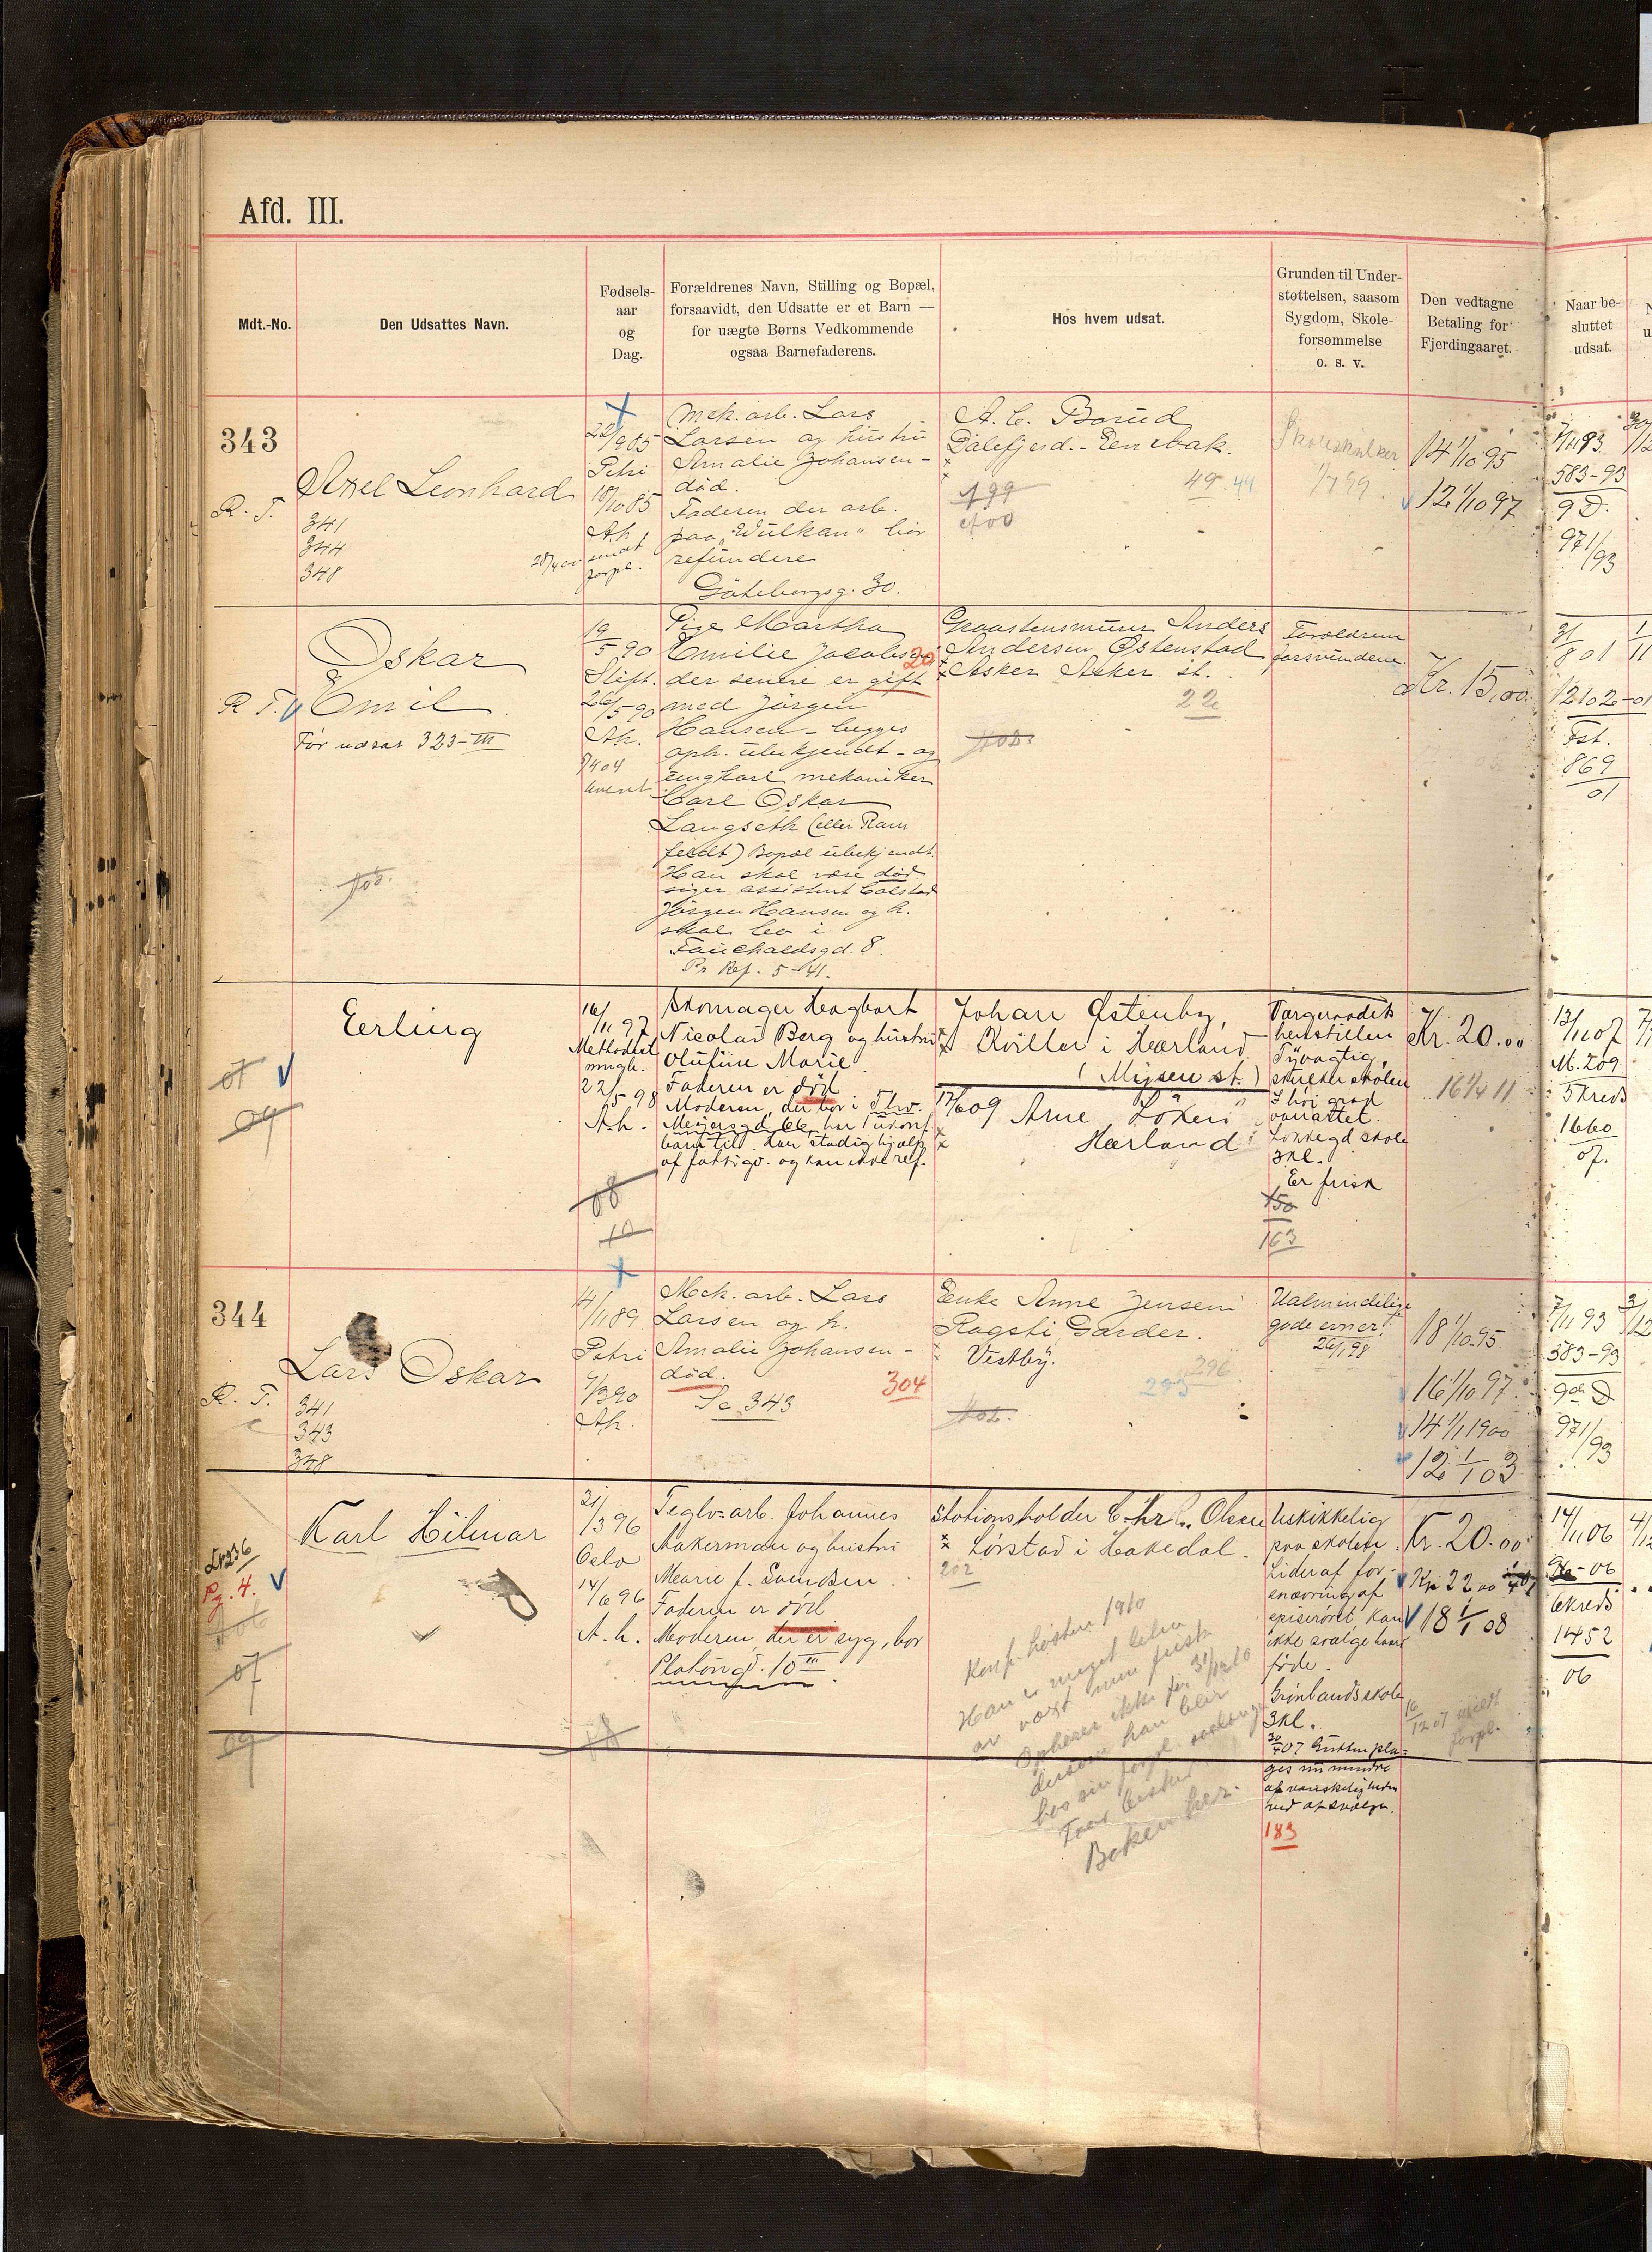 Afd. III.
Mdt.-No.
Den Udsattes Navn.
Fødsels-
aar
og
Dag.
Forældrenes Navn, Stilling og Bopæl,
forsaavidt, den Udsatte er et Barn —
for uægte Børns Vedkommende
ogsaa Barnefaderens.
Hos hvem udsat.
Grunden til Under-
støttelsen, saasom
Sygdom, Skole-
forsømmelse
o. s. v.
Den vedtagne
Betaling for
Fjerdingaaret.
Naar be-
sluttet
udsat.
343
Axel Leonhard
R. T.
341
344
348
22/9 85
Petri
18/10 85
A.h.
Mek. arb. Lars
Larsen og hustru
Amalie Johansen -
død.
Faderen der arb.
paa "Wulkan" bør
refundere
Göteborgsg. 30.
A. C. Borud
Dalefjerd. - Enebak.
49. 49
Skoleskulker
1/7 99.
14 1/10 95
12 1/10 97
7/11 93
583-93
9 D.
971/93
Oskar
Emil
R. T.
Før udsat 323-III
19/5 90
Slips.
26/5 90
A.h.
Pige Martha
Emilie Jacobsen 20
der senere er gift
med Jørgen
Hansen - begges
oph. ubekjendt - og
ungkarl mekaniker
Carl Oskar
Langseth (eller Ram
feldt) Bopæl ubekjendt.
Han skal være død
siger assistent Colstad
Jørgen Hansen og h.
skal bo i
Fauchaldsgd. 8.
Pr. Ref. 5-41.
Graastensmurer Anders
Andersen Østenstad
Asker Asker st.
22
Forældrene
forsvundene.
Kr. 15,00.
1202-01
Fst.
869
01
Eerling
07
09
16/11 97
Methodist
migh.
22/5 98
A.h.
Skomager Hagbart
Nicolai Berg og hustru
Olufine Marie
Faderen er død
Moderen, der bor i Thv.
Meyersgd. 66, har 1 ukonf.
barn til. Har stadig hjælp
af fattigv. og kan ikke ref.
08
10
Johan Østenby,
Kviller i Hærland
(Mysen st.)
17/6 09 Arne Løken
Hærland
Værgeraadets
henstillen
Tyvagtig,
skulker skolen
I høi grad
vanartet.
Lakkegd skole
3 kl.
Er frisk
150
163
Kr. 20.00
16 1/4 11
12/11 07
M. 209
5 kreds
1660
07.
344
Lars Oskar
R. T.
341
343
348
4/11 89
Petri
9/3 90
A.h.
Mek. arb. Lars
Larsen og h.
Amalie Johansen -
død.
Se 343
304
Enke Anne Jensen
Ragsti Garder.
Vestby.
296
295
Ualmindelige
gode evner!
26/1 98
18 1/10 95
16 1/10 97
14 1/1 1900
12 1/1 03
7/11 93
583-93
9de D
971/93
Karl Hilmar
L. 236
Pg. 4.
07
09
21/3 96
Oslo
14/6 96
A.h.
Teglv. arb. Johannes
Makerman og hustru
Marie f. Svendsen
Faderen er død
Moderen, der er syg, bor
Platougd. 10 III
Stationsholder Chr. C. Olsen
Lørstad i Hakedal.
202
Konf. høsten 1910
Han er meget liten
av vext men frisk
Ophører ikke før 31/12 10
dersom han blir
hos sin forpl. saalænge
Bøken her.
Uskikkelig
paa skolen.
Lider af for-
snævring af
spiserøret kan
ikke svælge haard
føde.
Grønlandsskole
3 kl.
30/4 07 Gutten pla-
ges nu mindre
af vanskeligheden
ved at svælge.
183
Kr. 20.00
Kr 22 00
18 1/1 08
14/11 06
6 kreds
1452
06